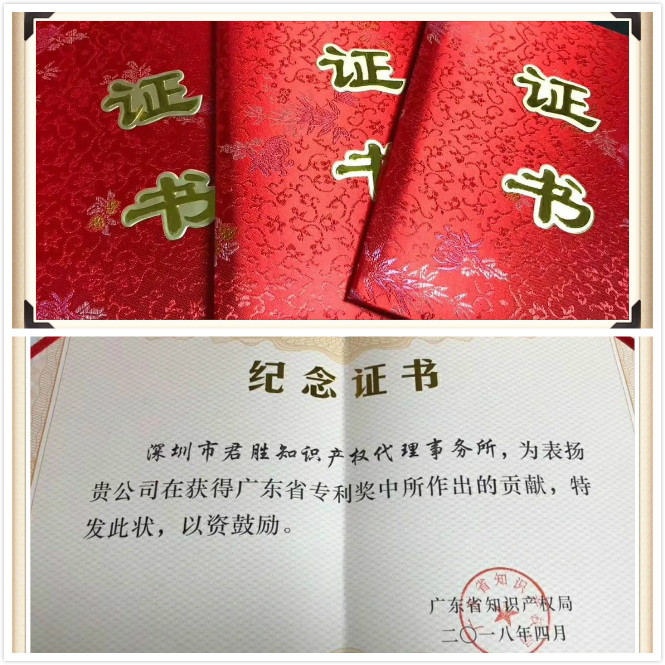 证
书
证
书
证
书
纪念证书
深圳市君胜知识产权代理事务所，为表扬
贵公司在获得广东省专利奖中所作出的贡献，特
发此状，以资鼓励。
广东省知识产权局
二〇一八年四月